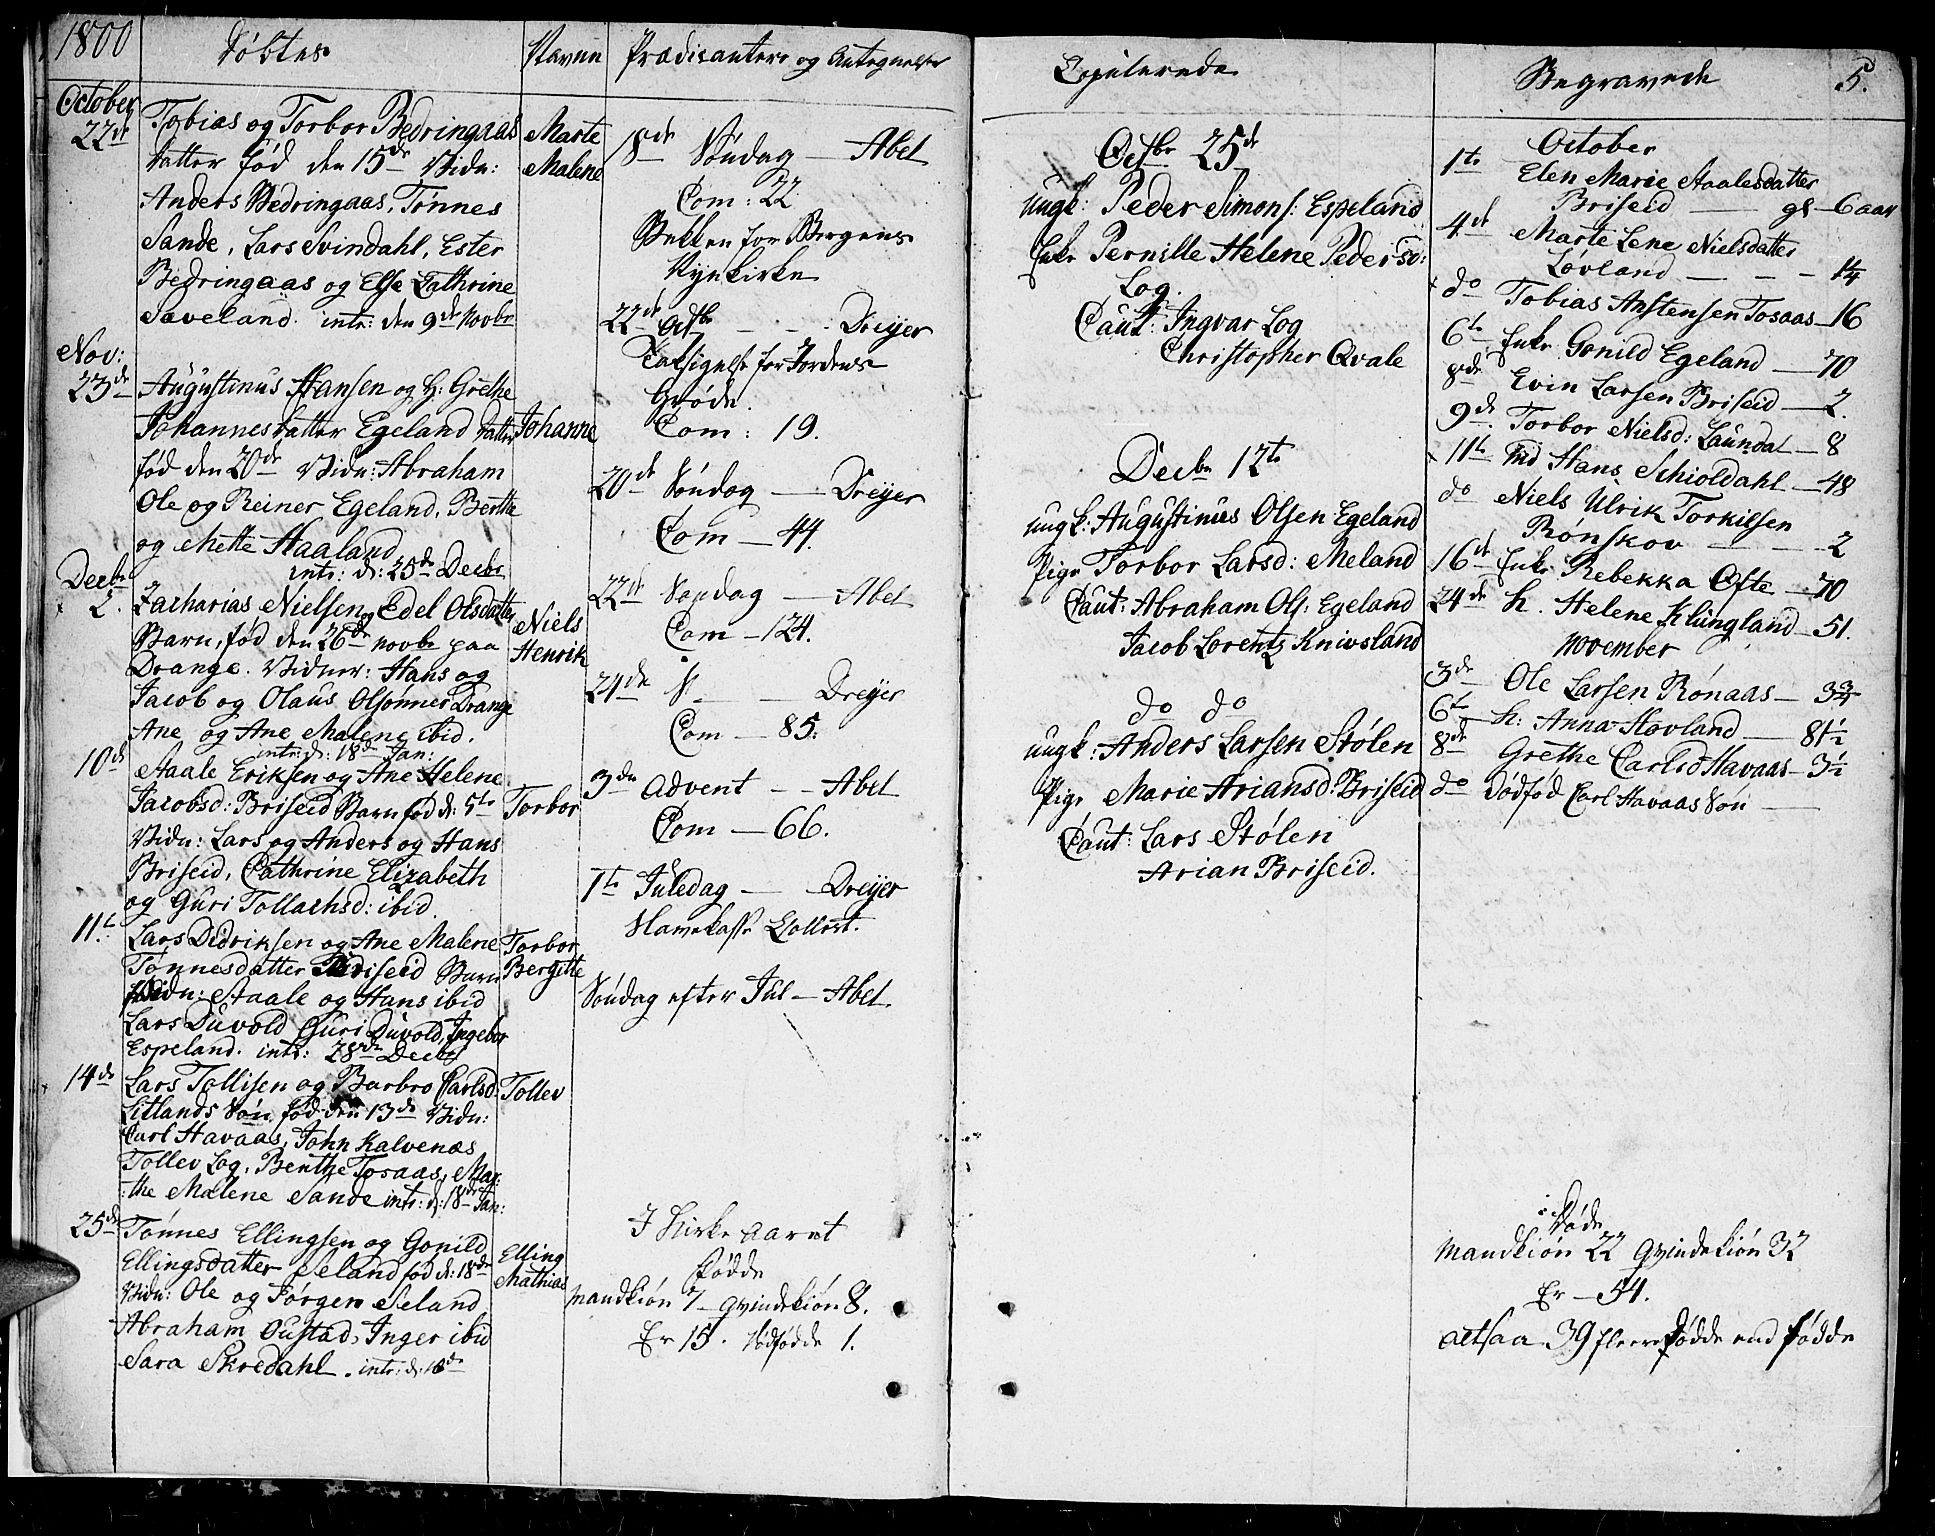 1800
Døbtes
Navne
Prædicantere og Antegnelser
October
22de
Tobias og Torbor Bedringaas
datter fød den 15de Vidn:
Anders Bedringaas, Tønnes
Sande, Lars Svindahl, Ester
Bedringaas og Else Cathrine
Saveland. intr: den 9de Novbr
Marte
Malene
Nov:
23de
Augustinus Hansen og H: Grethe
Johannesdatter Egeland datter
fød den 20de Vidn: Abraham
Ole og Reiner Egeland, Berthe
og Mette Haaland
intr: d: 25de Decbr
Johanne
Decbr
2.
Zacharias Nielsen og Edel Olsdatter
Barn, fød den 26de Novbr paa
Drange. Vidner: Hans og
Jacob og Olaus Olsønner Drange
Ane og Ane Malene ibid.
intr: d: 18de Jan:
Niels
Henrik
10de
Aaale Eriksen og Ane Helene
Jacobsd: Briseid Barn fød d: 5te
Vidn: Lars og Anders og Hans
Briseid, Cathrine Elizabeth
og Guri Tollachsd: ibid.
Torbor
11te
Lars Didriksen og Ane Malene
Tønnesdatter Briseid Barn
Vidn: Aaale og Hans ibid
Lars Duvold Guri Duvold, Ingebor
Espeland. intr: 28de Decbr
Torbor
Bergitte
14de
Lars Tollisen og Barbro Carlsd:
Litlands Søn, fød den 13de Vidn:
Carl Havaas, John Kalvenæs
Tollev Log, Berthe Tosaas, Mar:
:the Malene Sande intr: d: 18de Jan:
Tollev
25de
Tønnes Ellingsen og Gonild
Ellingsdatter Seland fød d: 18de
Vidn: Ole og Jørgen Seland
Abraham Oustad, Inger ibid
Sara Skredahl. intr: d: 18de
Elling
Mathias
18de Søndag — Abel
Com: 22
Bekken for Bergens
Nykirke
22de Octbr — Dreyer
Taksigelse for Jordens
Grøde.
Com: 19.
20de Søndag — Dreyer
Com — 44.
22de Søndag — Abel
Com — 124.
24de S — Dreyer
Com — 85.
3die Advent — Abel
Com — 66.
1te Juledag — Dreyer
Søndag efter Jul — Abel
I Kirke aaret
fødde
Mandkiøn 7 — Qvindekiøn 8.
Er 15. dødfødde 1.
Copulerede
Octbr 25de
Ungk: Peder Simons: Espeland
Enke Pernille Helene Peders D:
Log.
Caut: Ingvar Log
Christopher Qvale
Decbr 12te
Ungk: Augustinus Olsen Egeland
Pige Torbor Larsd: Meland
Caut: Abraham Ols: Egeland
Jacob Lorentz Knivsland
do do
Ungk: Anders Larsen Stølen
Pige Marie Ariansd: Briseid
Caut: Lars Stølen
Arian Briseid.
Begravede
5.
October
1te Elen Marie Aaalesdatter
Briseid — gl — 6 aar
4de Marte Lene Nielsdatter
Løvland — 1/4
do Tobias Anstensen Tosaas — 16
6te Enke Gonild Egeland — 70
8de Evin Larsen Briseid — 2.
9de Torbor Nielsd: Laundal — 8
11te Hans Schioldahl — 48
do Niels Ulrik Torkilsen
Rønskov — 2
16de Enke Rebekka Ofte — 70
24de h. Helene Klungland — 51.
November
3de Ole Larsen Rønaas — 3 3/4
6te h: Anna Hovland — 81 1/2
8de Grethe Carlsd Havaas — 3 1/2
do Dødfød Carl Havaas Søn —
Døde
Mandkiøn 22 Qvindekiøn 32
Er — 54.
altsaa 39 fleere Døde end fødde